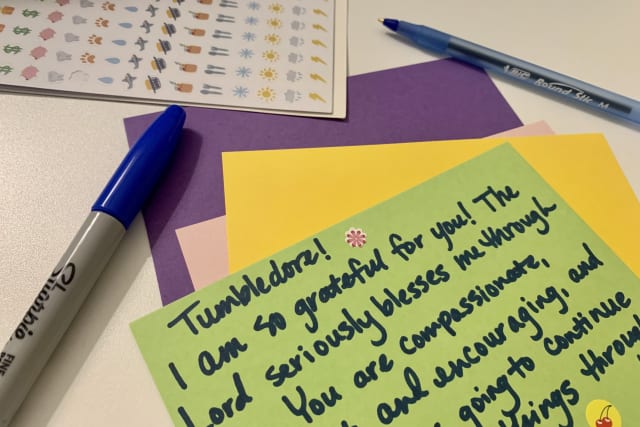 BIC Round Stic M
Sharpie
FINE
Tumbledorz!
I am so grateful for you! The
Lord seriously blesses me through
You are compassionate,
and encouraging, and
going to continue
through